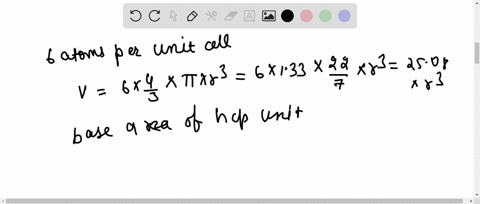 6 atoms per unit cell
V = 6 × 4/3 × π × r³ = 6 × 1.33 × 22/7 × r³ = 25.08 × r³
base area of hcp unit